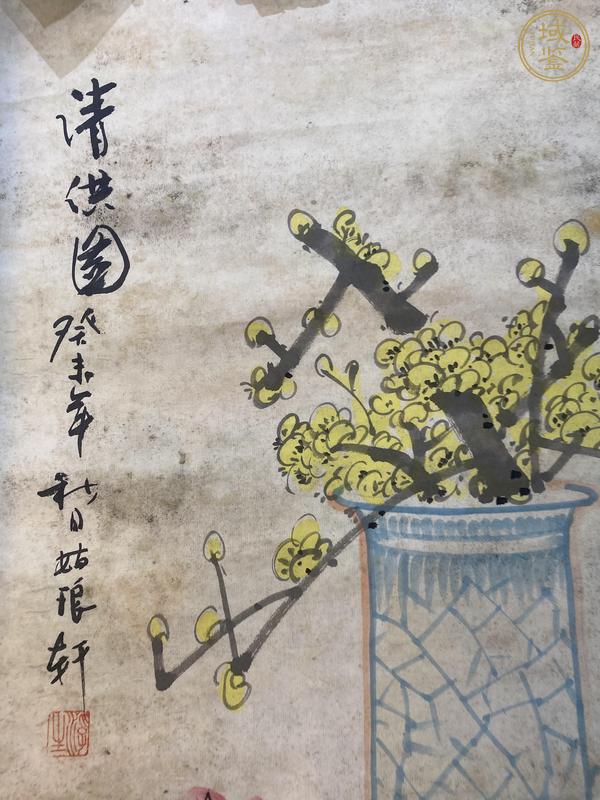 清供圖癸未年秋日姑琅轩
域鉴